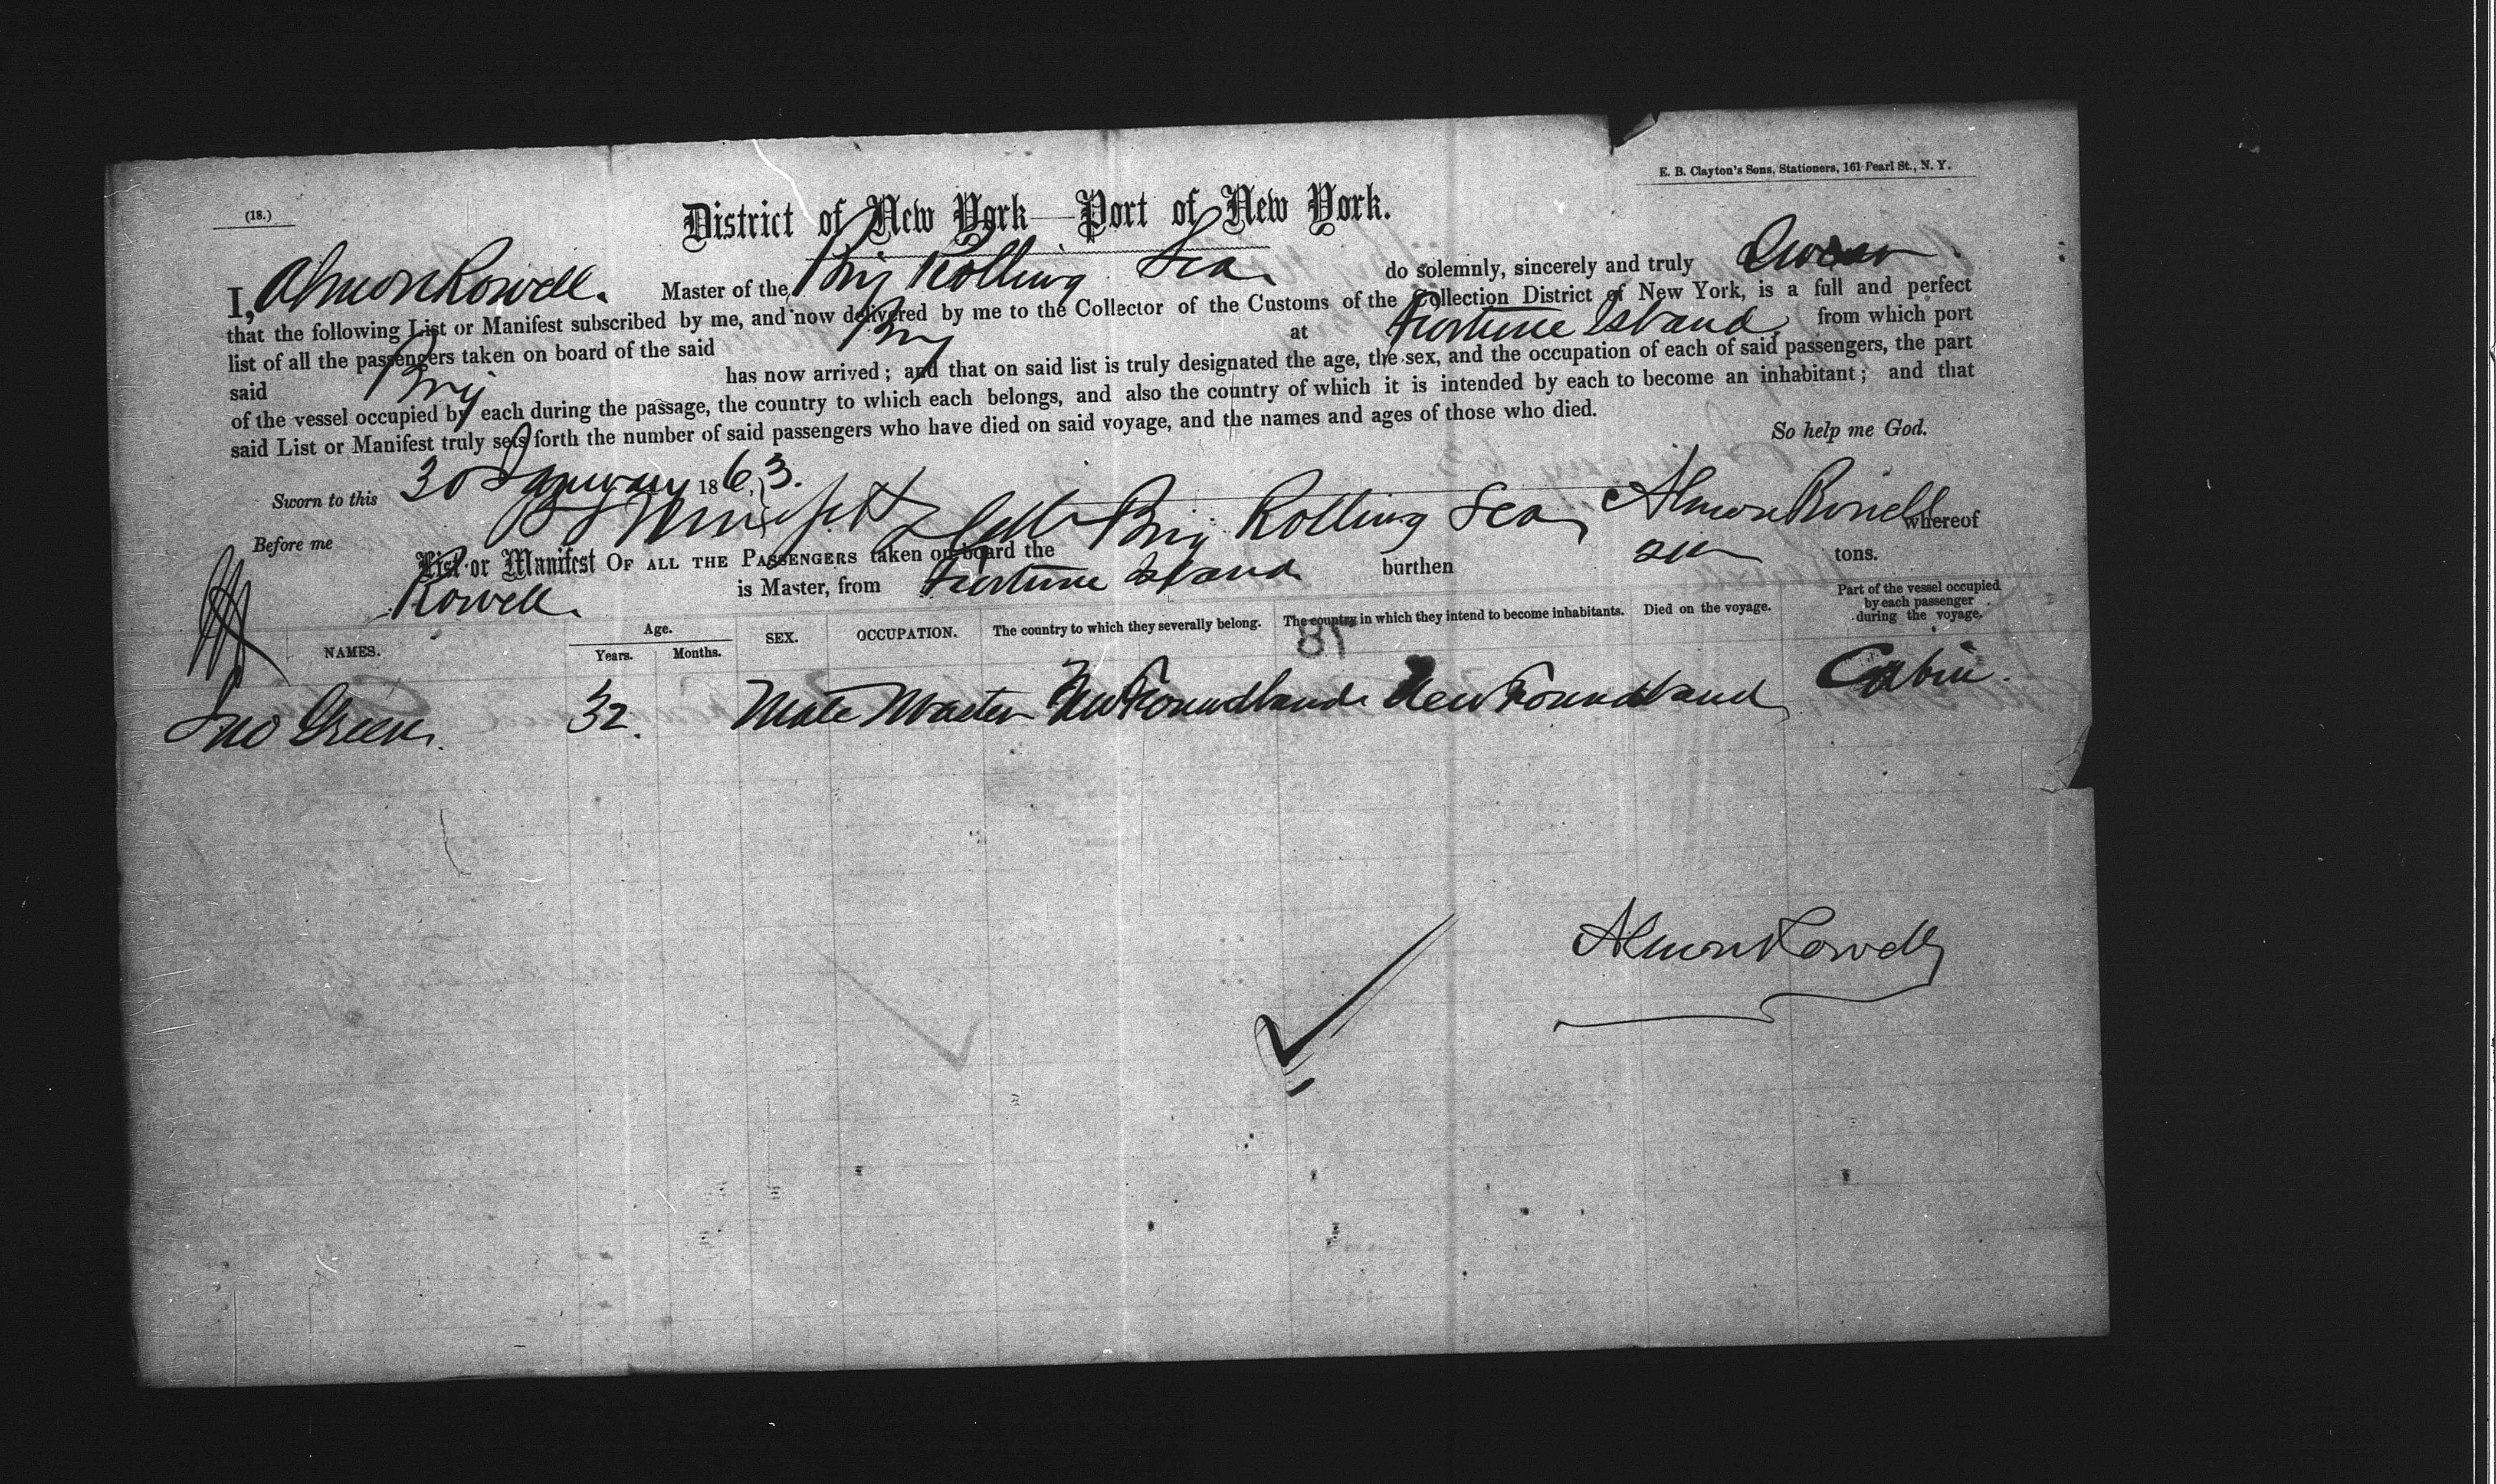 E. B. Clayton's Sons, Stationers, 161 Pearl St., N. Y.
(18.)
District of New York—Port of New York.
I, Almon Rowell. Master of the Brig Rolling Sea. do solemnly, sincerely and truly Swear
that the following List or Manifest subscribed by me, and now delivered by me to the Collector of the Customs of the Collection District of New York, is a full and perfect
list of all the passengers taken on board of the said Brig at Fortune Island, from which port
said Brig has now arrived; and that on said list is truly designated the age, the sex, and the occupation of each of said passengers, the part
of the vessel occupied by each during the passage, the country to which each belongs, and also the country of which it is intended by each to become an inhabitant; and that
said List or Manifest truly sets forth the number of said passengers who have died on said voyage, and the names and ages of those who died.
So help me God.
Sworn to this 30 January 1863.
Before me Almon Rowell
List or Manifest OF ALL THE PASSENGERS taken on board the Brig Rolling Sea, whereof
Rowell. is Master, from Fortune Island burthen tons.
NAMES. Age. Years. Months. SEX. OCCUPATION. The country to which they severally belong. The country in which they intend to become inhabitants. Died on the voyage. Part of the vessel occupied by each passenger during the voyage.
87
Jno Green. 32. Male Master Newfoundland New Foundland Cabin.
Almon Rowell